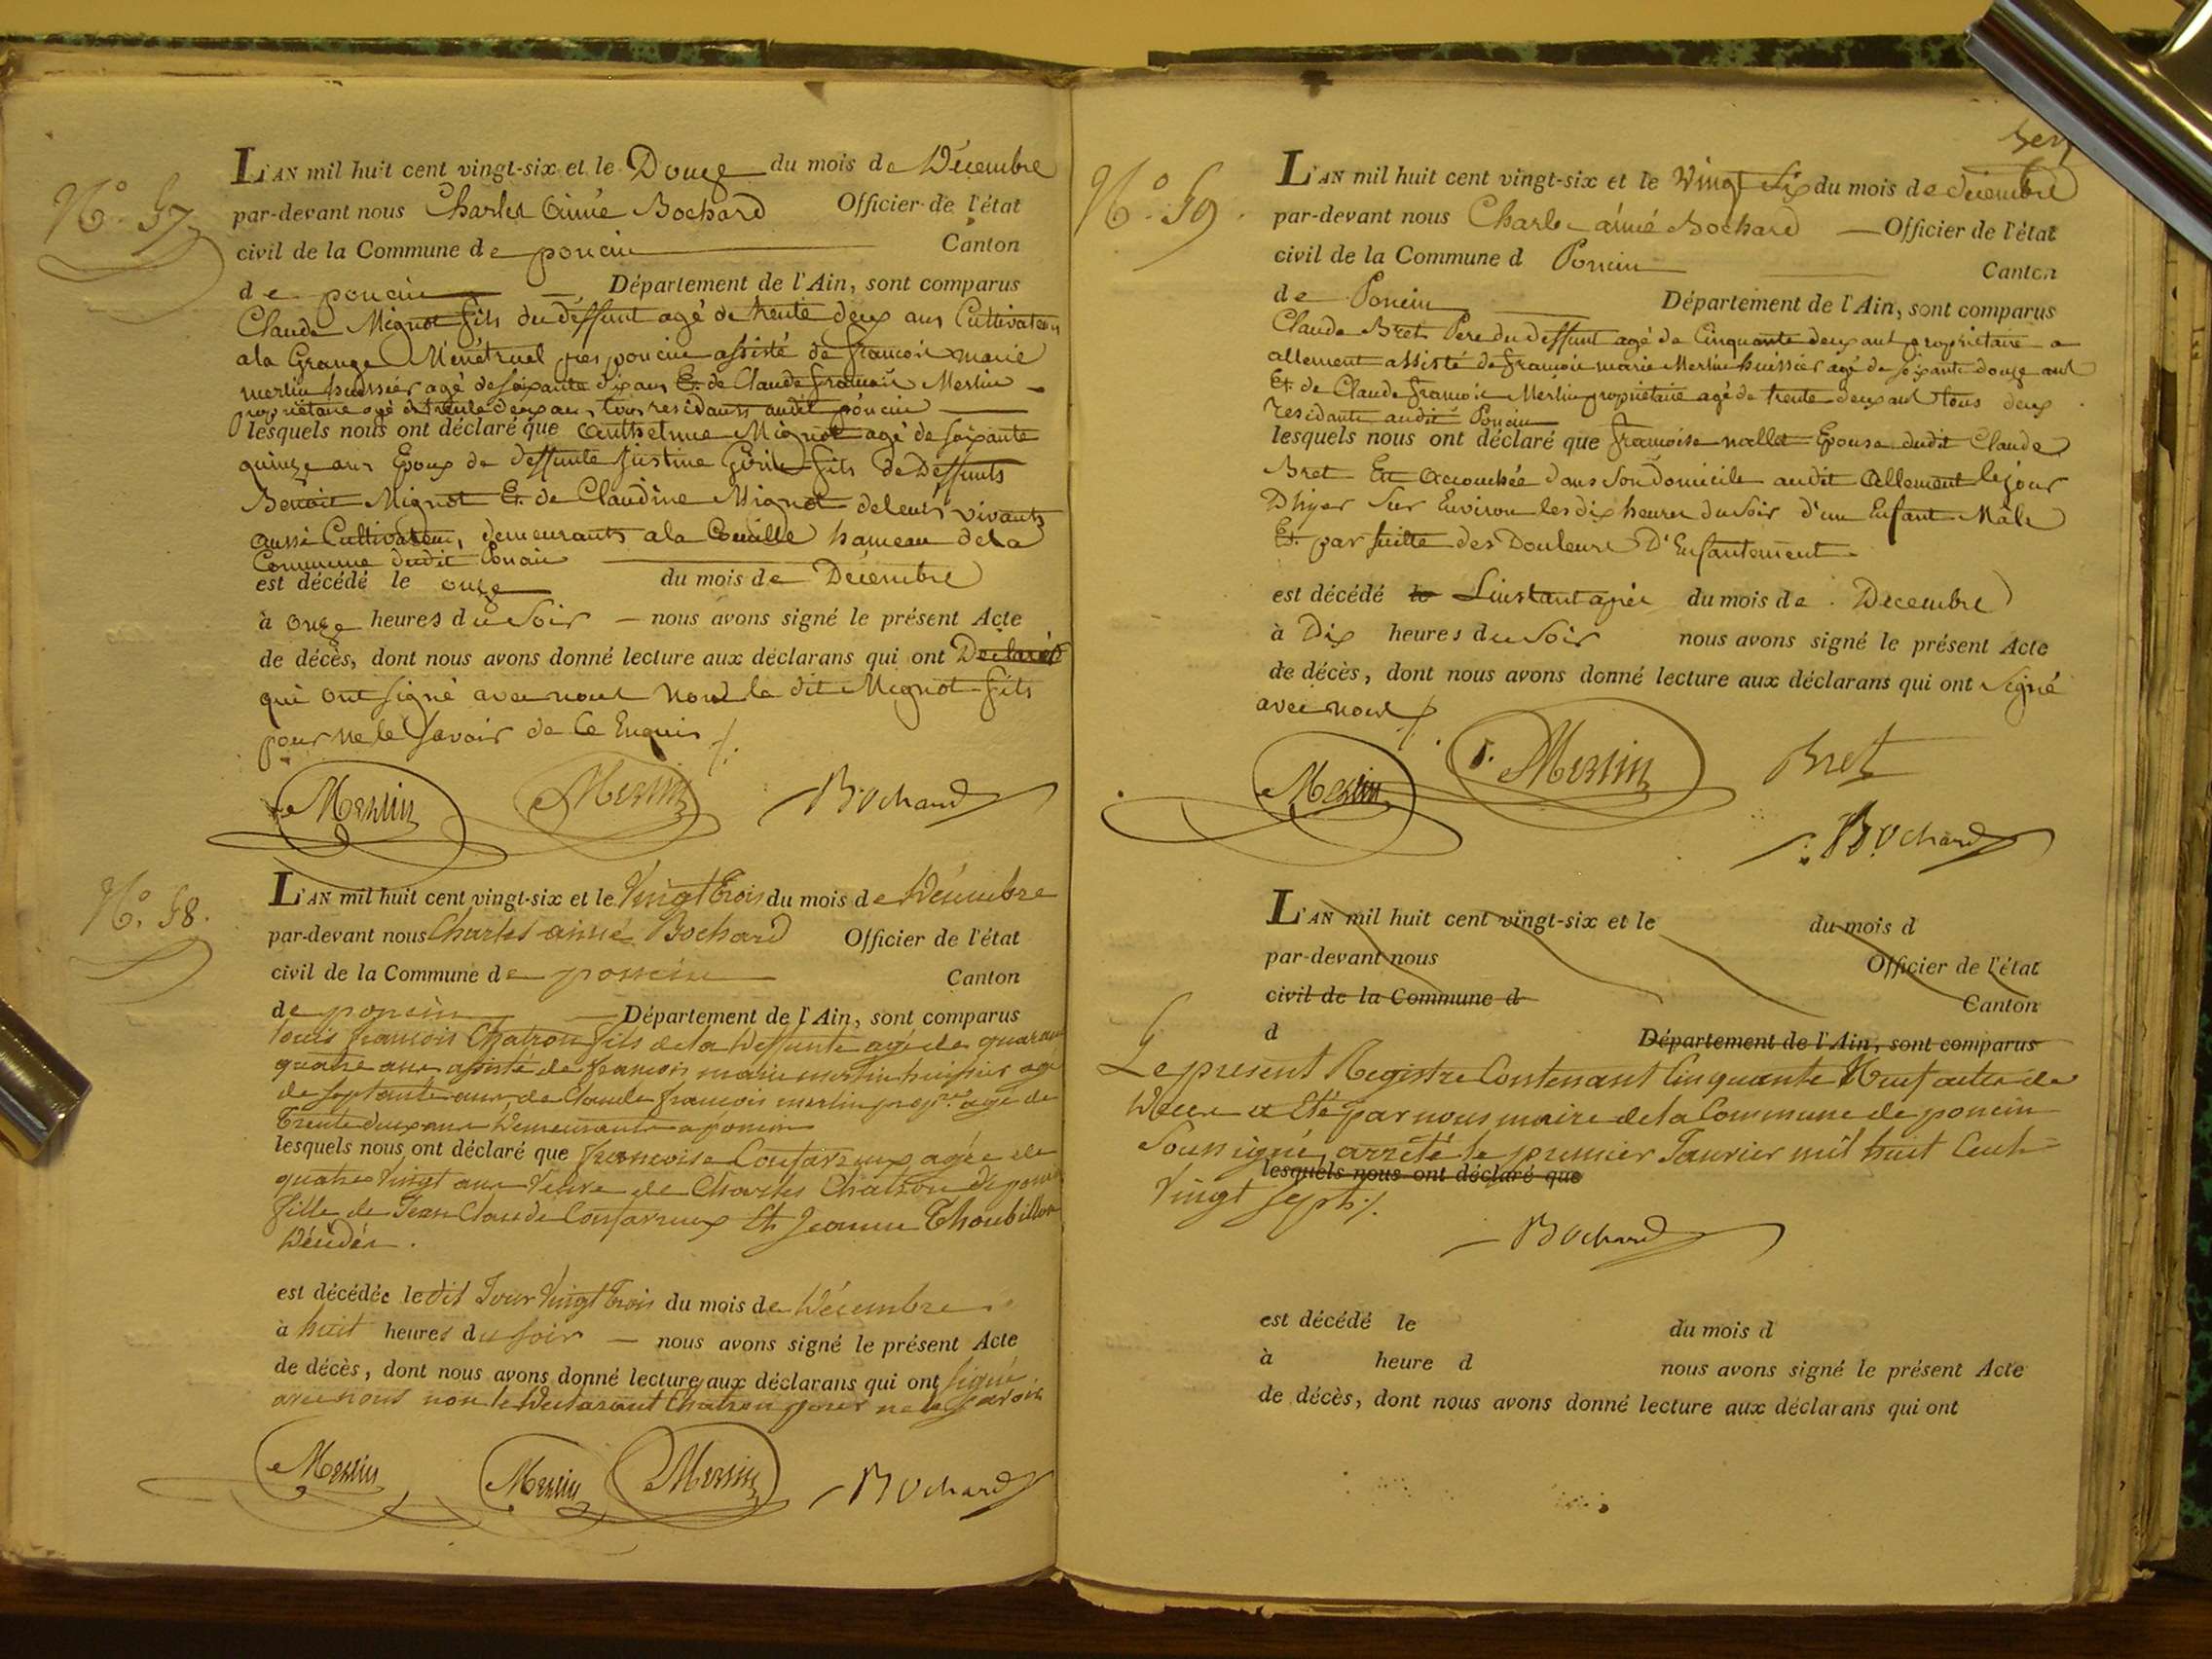 N.° 57
L'AN mil huit cent vingt-six et le Douze du mois de Décembre
par-devant nous Charles aimé Bochard Officier de l'état
civil de la Commune de poncin Canton
de poncin Département de l'Ain, sont comparus
Claude Mignot fils du deffunt agé de trente deux ans Cultivateur
a la Grange Menétruel pres poncin assisté de francois marie
merlin huissier agé de soixante dix ans Et de Claude francois Merlin
proprietaire agé de trente deux ans, tous residants audit poncin
lesquels nous ont déclaré que anthelme Mignot agé de soixante
quinze ans Epoux de deffunte justine fils de Deffunts
Benoit Mignot Et de Claudine Mignot de leurs vivants
aussi Cultivateurs, demeurants a la hameau de la
Commune dudit Poncin
est décédé le onze du mois de Décembre
à onze heures du soir nous avons signé le présent Acte
de décès, dont nous avons donné lecture aux déclarans qui ont Declarés
qui ont signé avec nous non le dit Mignot fils
pour ne le savoir de Ce Enquis ./.
Merlin Merlin Bochard
N.° 58.
L'AN mil huit cent vingt-six et le Vingt trois du mois de Décembre
par-devant nous Charles aimé Bochard Officier de l'état
civil de la Commune de poncin Canton
de poncin Département de l'Ain, sont comparus
louis francois Chatron fils de la Deffunte agé de quarante
quatre ans assisté de francois marie merlin huissier agé
de septante ans, de Claude francois merlin propre agé de
Trente deux ans Demeurants a poncin
lesquels nous ont déclaré que francoise Confavreux agée de
quatre Vingt ans Veuve de Charles Chatron de poncin
fille de Jean Claude Confavreux Et Jeanne Thoubillon
Décédés.
est décédée le dit Jour Vingt trois du mois de Décembre
à huit heures du soir nous avons signé le présent Acte
de décès, dont nous avons donné lecture aux déclarans qui ont signé
avec nous non le Declarant Chatron pour ne le savoir
Merlin Merlin Merlin Bochard
N.° 59.
L'AN mil huit cent vingt-six et le Vingt Six du mois de décembre
par-devant nous Charle aimé Bochard Officier de l'état
civil de la Commune d Poncin Canton
de Poncin Département de l'Ain, sont comparus
Claude Bret Pere du deffunt agé de Cinquante deux ans proprietaire a
allement assisté de francois marie Merlin huissier agé de soixante douze ans
Et de Claude francois Merlin proprietaire agé de trente deux ans tous deux
residants audit Poncin
lesquels nous ont déclaré que francoise nallet Epouse dudit Claude
Bret Est accouchée dans son Domicile audit allement le jour
D'hyer sur Environ les dix heures du soir d'un Enfant Mâle
Et par suitte des Douleurs D'Enfantement
est décédé le L'instant aprés du mois de Decembre
à Dix heures du soir nous avons signé le présent Acte
de décès, dont nous avons donné lecture aux déclarans qui ont signé
avec nous ./.
Merlin Merlin Bret
Bochard
L'AN mil huit cent vingt-six et le du mois d
par-devant nous Officier de l'état
civil de la Commune d Canton
d Département de l'Ain, sont comparus
Le present Registre Contenant Cinquante Neuf actes de
Déces a Eté par nous maire de la Commune de poncin
Soussigné, arrété le premier Janvier mil huit Cent
lesquels nous ont déclaré que
Vingt sept ./.
Bochard
est décédé le du mois d
à heure d nous avons signé le présent Acte
de décès, dont nous avons donné lecture aux déclarans qui ont